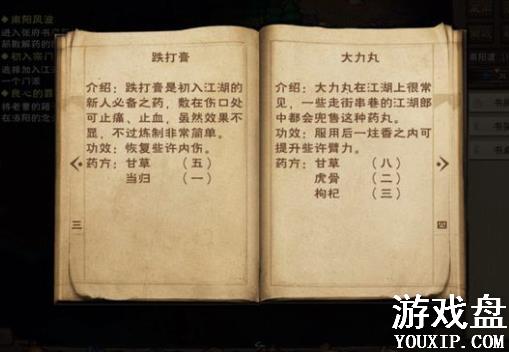 南阳风波
进入张府书房
筋散解药的
初入宗门
选择加入江
一个门派
良心的罪
将老曹的
在洛阳的北
跌打膏
介绍：跌打膏是初入江湖的
新人必备之药，敷在伤口处
可止痛、止血，虽然效果不
显，不过炼制非常简单。
功效：恢复些许内伤。
药方：甘草 （五）
当归 （一）
三
大力丸
介绍：大力丸在江湖上很常
见，一些走街串巷的江湖郎
中都会兜售这种药丸。
功效：服用后一炷香之内可
提升些许臂力。
药方：甘草 （八）
虎骨 （二）
枸杞 （三）
四
游戏盘
YOUXIP.COM